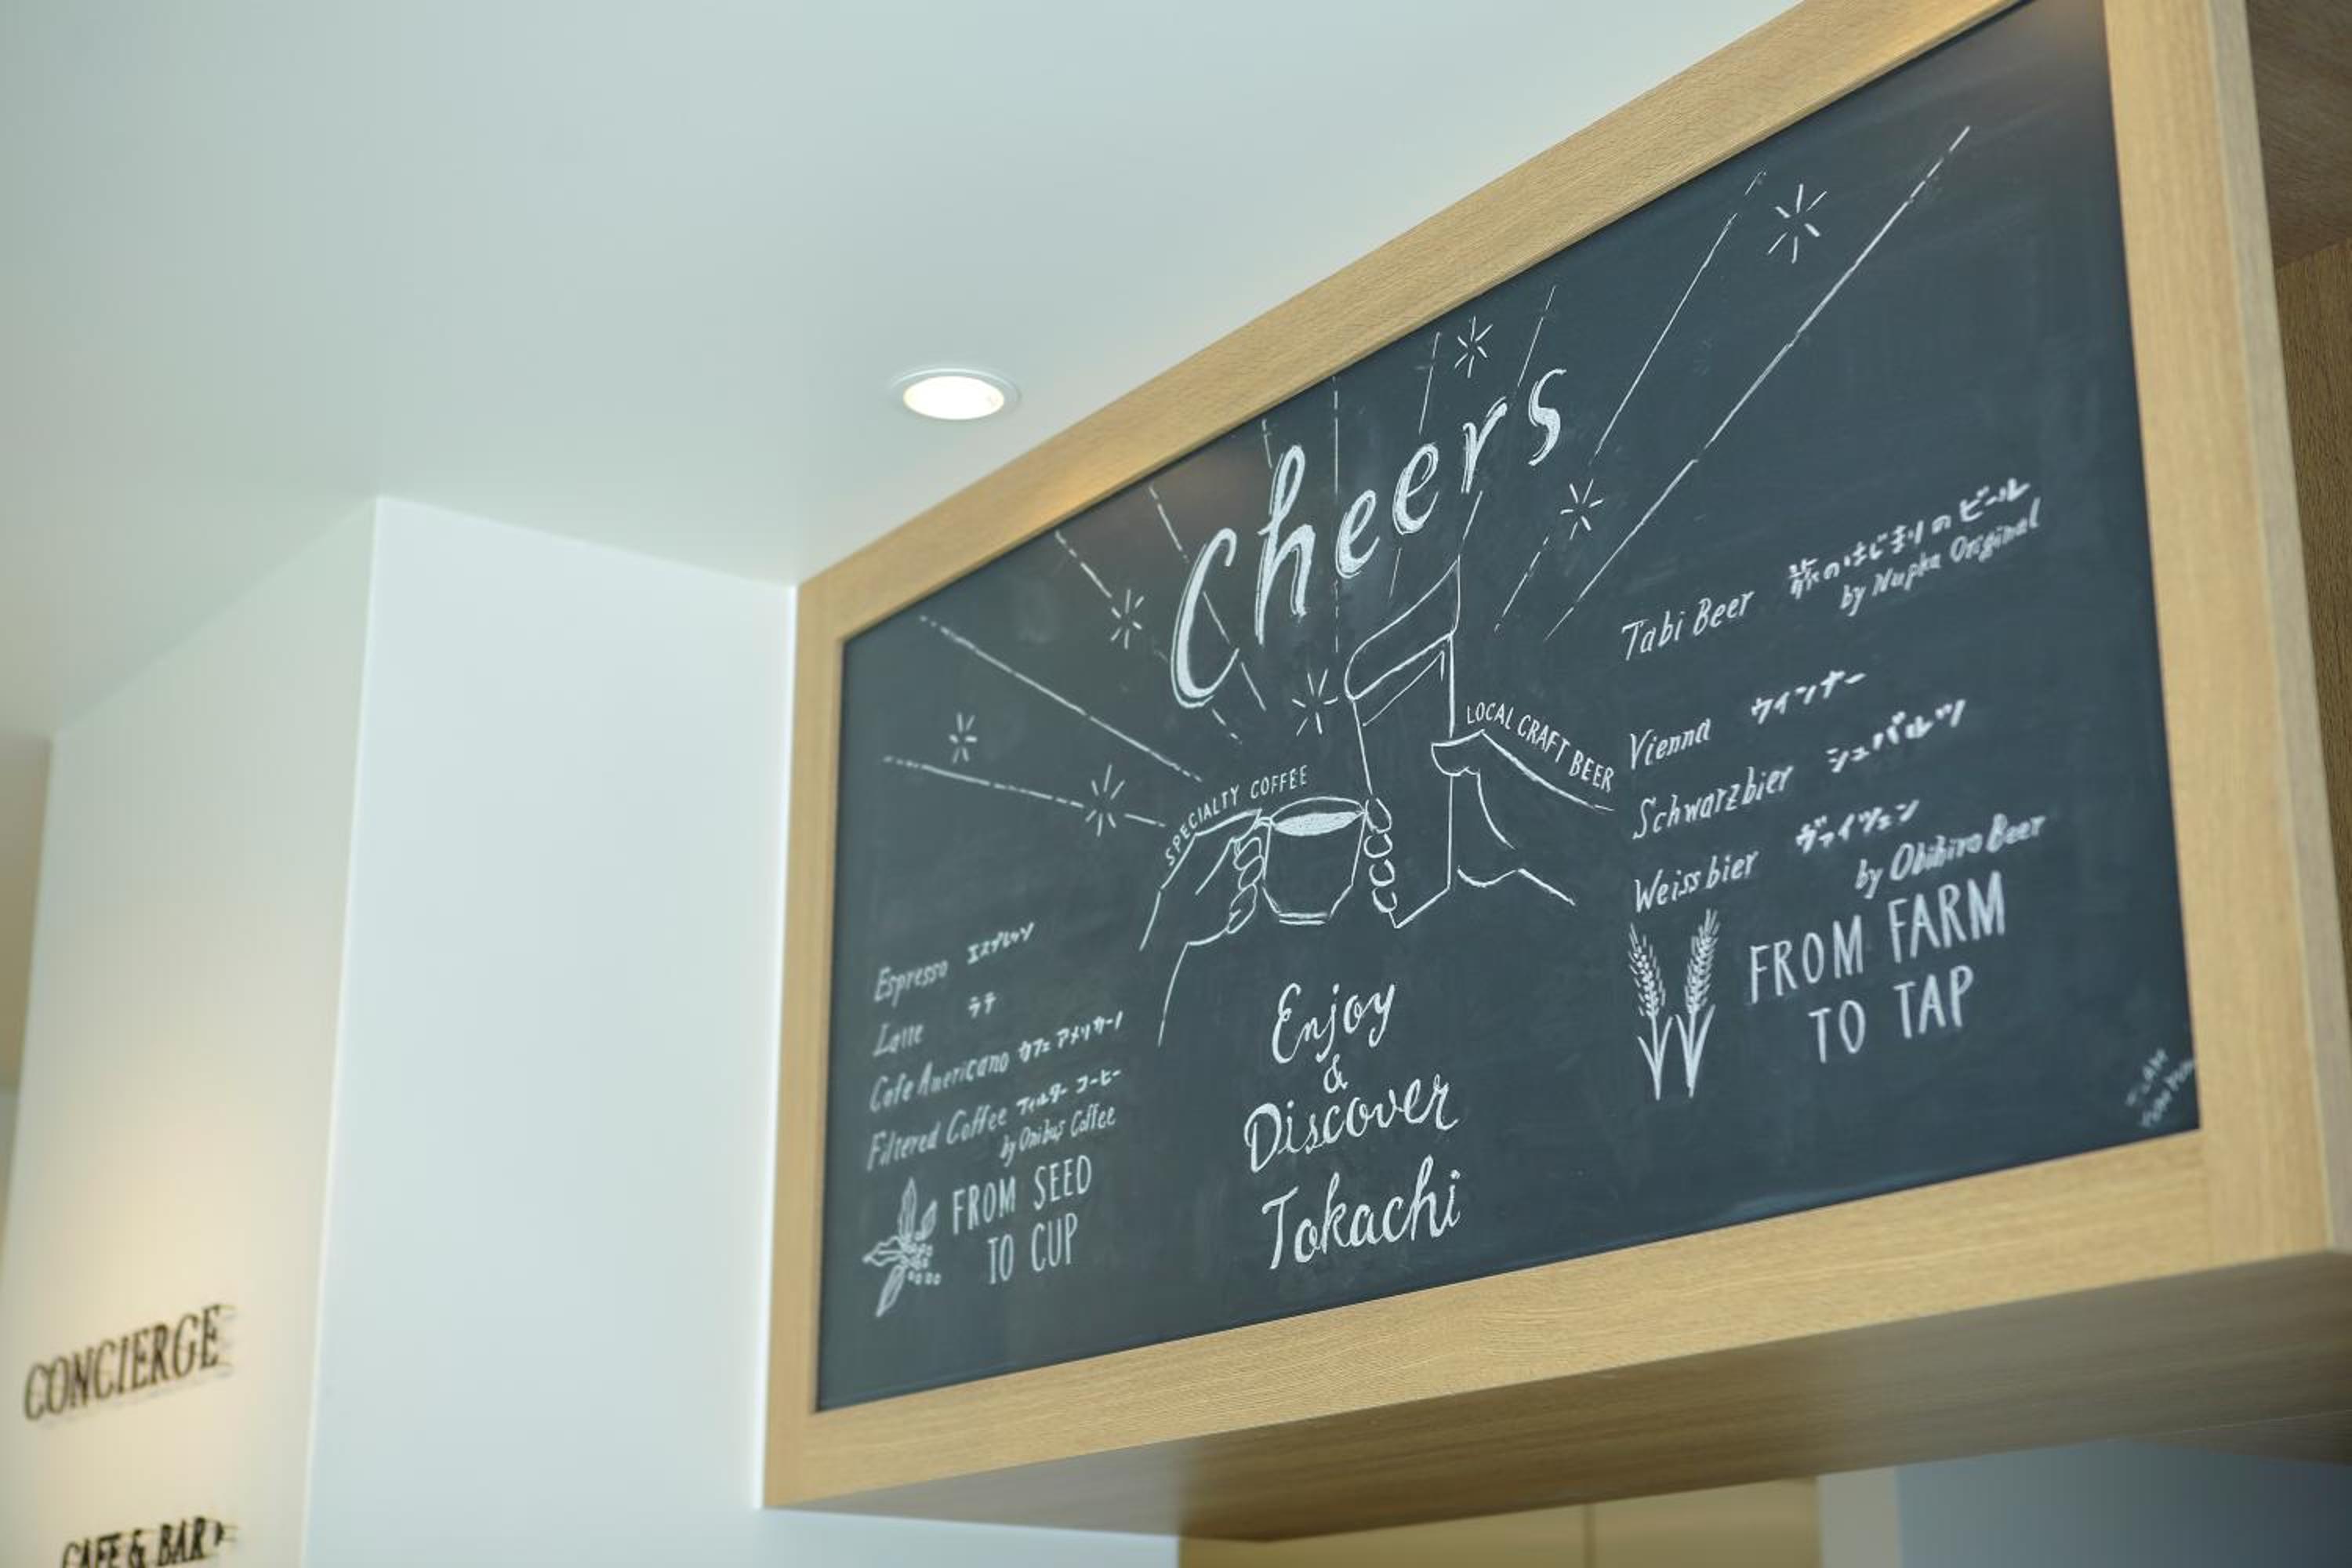 Cheers
SPECIALTY COFFEE
LOCAL CRAFT BEER
Espresso エスプレッソ
Latte ラテ
Cafe Americano カフェ アメリカーノ
Filtered Coffee フィルター コーヒー
by Onibus Coffee
FROM SEED
TO CUP
Enjoy
&
Discover
Tokachi
Tabi Beer 旅のはじまりのビール
by Nupka Original
Vienna ウィンナー
Schwarzbier シュバルツ
Weissbier ヴァイツェン
by Obihiro Beer
FROM FARM
TO TAP
CONCIERGE
CAFE & BAR